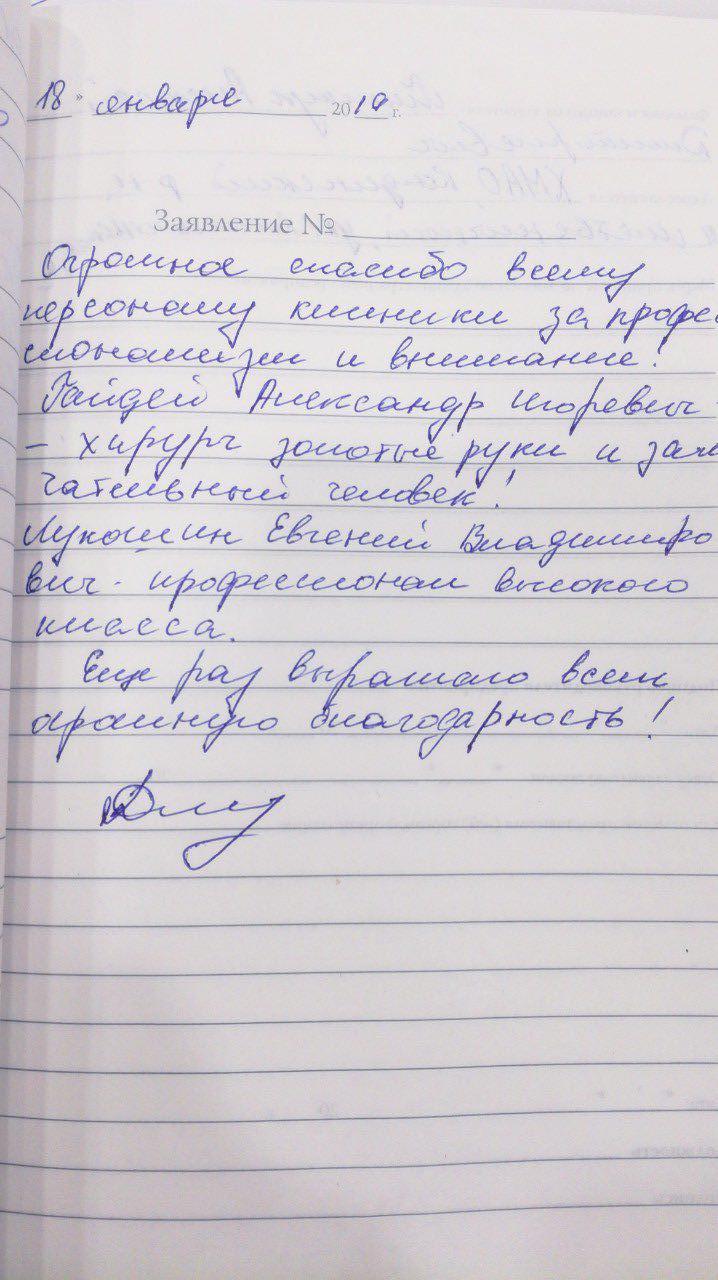 18 » января 2019 г.
Заявление №
Огромное спасибо всему
персоналу клиники за профес
сионализм и внимание!
Гайдей Александр Игоревич -
- хирург золотые руки и заме
чательный человек!
Лукошин Евгений Владимиро
вич - профессионал высокого
класса.
Еще раз выражаю всем
огромную благодарность!